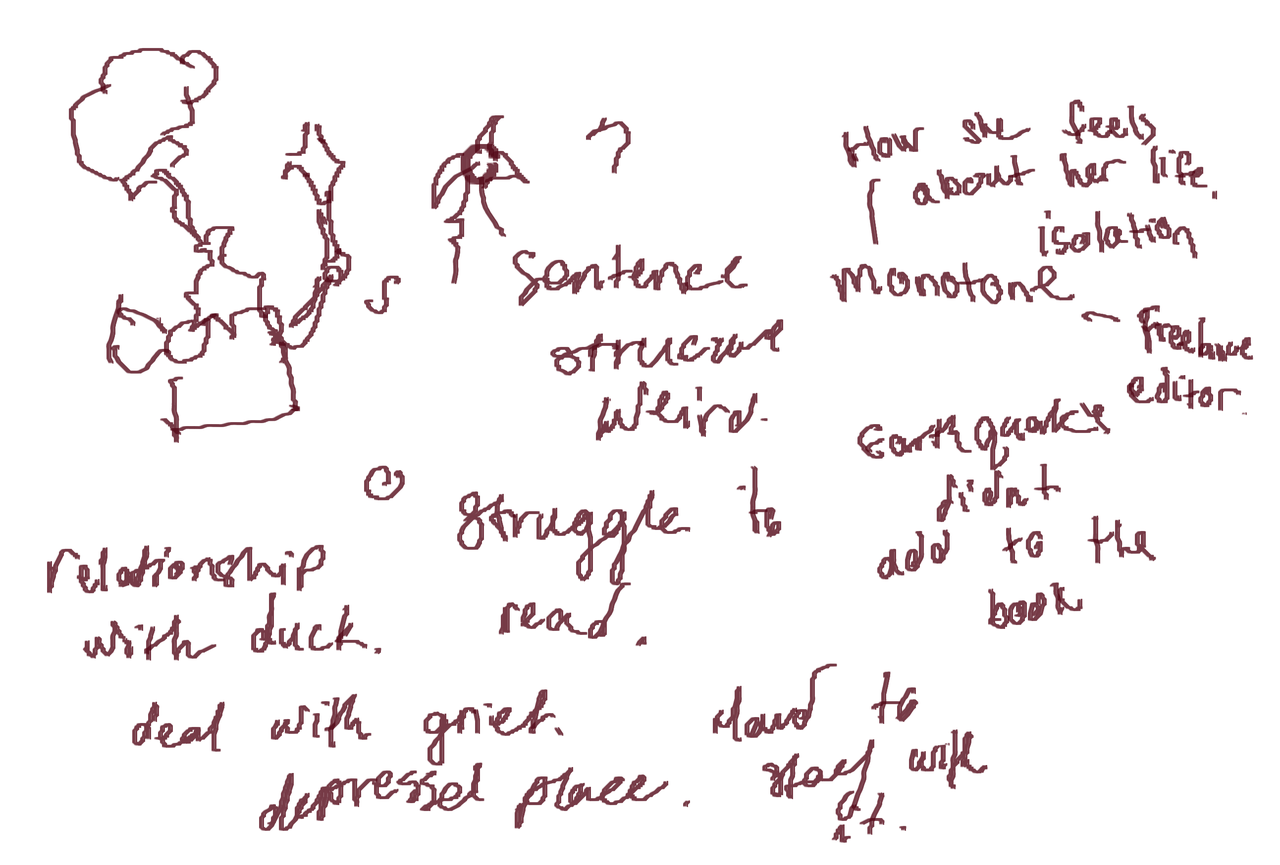 ?
How she feels
about her life.
isolation
monotone
freelance
editor.
sentence
structure
weird.
Earthquake
didnt
add to the
book
struggle to
read.
relationship
with duck.
deal with grief.
depressed place.
Hard to
stay with
it.